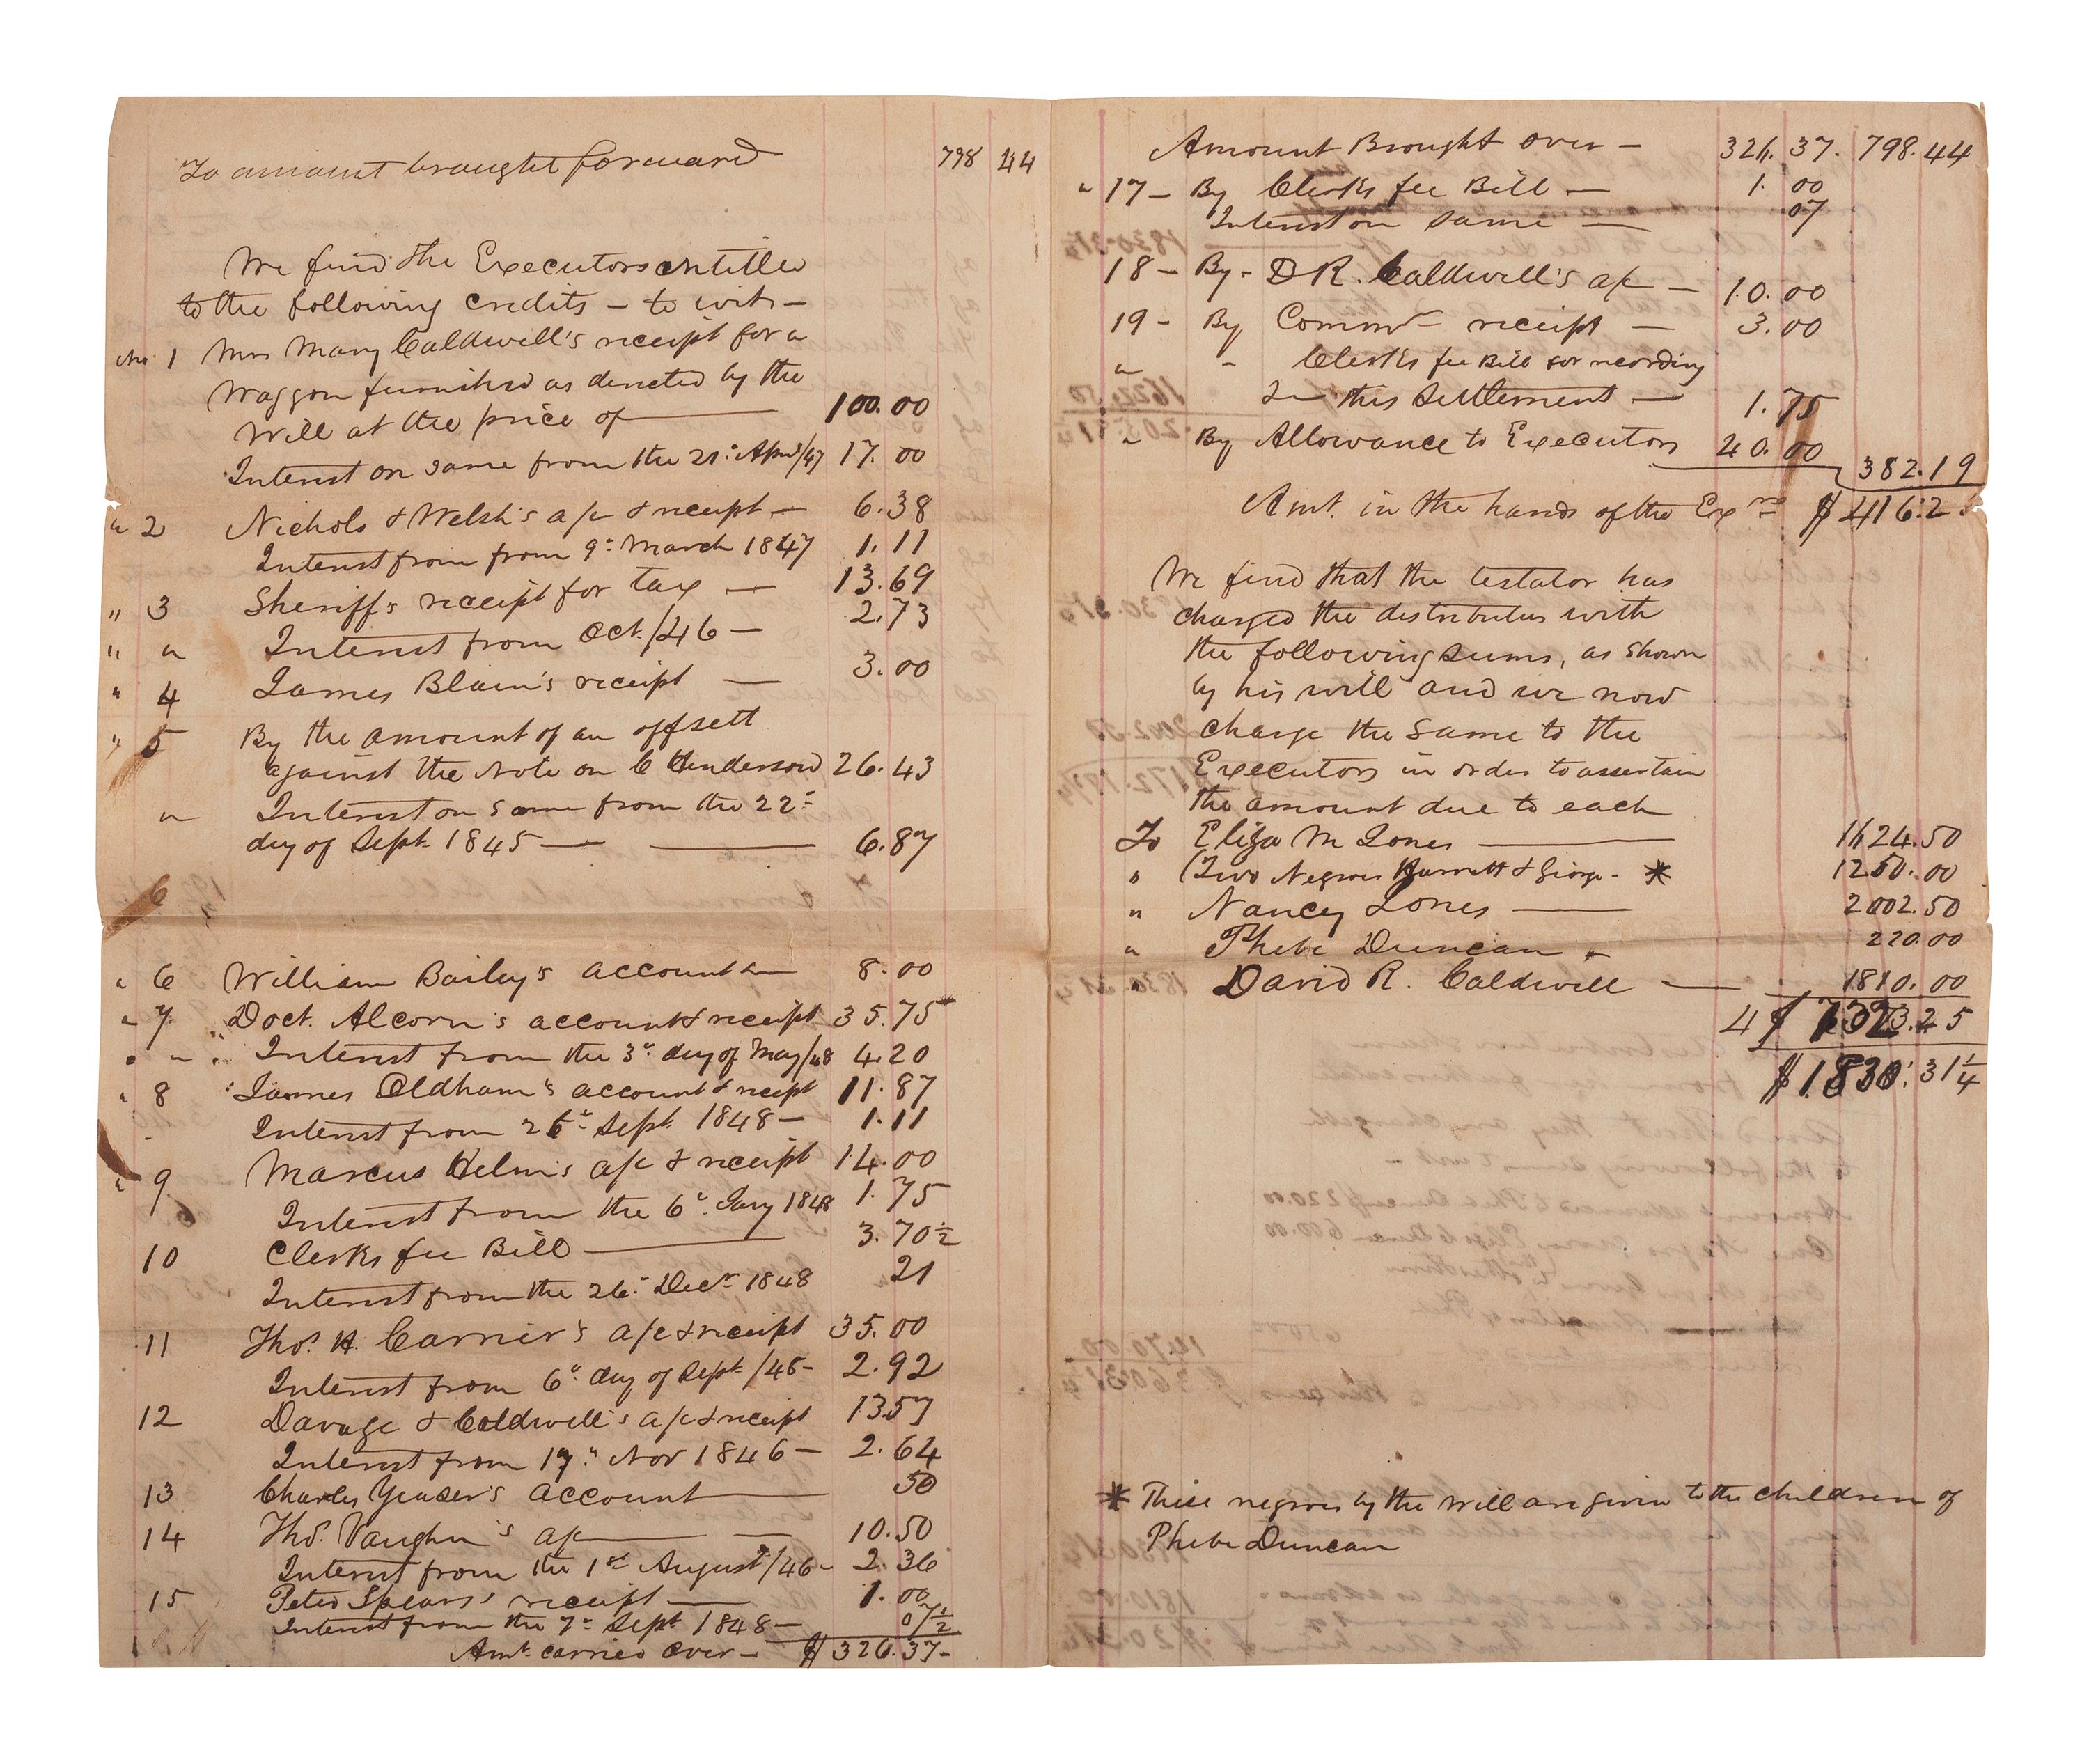 To amount brought forward 798 44
We find the Executors entitled
to the following credits – to wit –
No 1 Mrs Mary Caldwell's receipt for a
Waggon furnished as directed by the
Will at the price of — 100.00
Interest on same from the 21st Apri/47 17.00
" 2 Nichols & Welsh's a/c & receipt — 6.38
Interest from from 9th March 1847 1.11
" 3 Sheriff's receipt for tax — 13.69
" " Interest from Oct./46 — 2.73
" 4 James Blain's receipt — 3.00
" 5 By the amount of an offsett
against the Note on C Henderson 26.43
" Interest on same from the 22d
day of Sept. 1845 — — 6.87
6
" 6 William Bailey's account 8.00
" 7 Doct. Alcorn's account & receipt 35.75
" " " Interest from the 3d day of May/48 4.20
" 8 James Oldham's account & receipt 11.87
Interest from 26th Sept. 1848 – 1.11
" 9 Marcus Helm's a/c & receipt 14.00
Interest from the 6th Jany 1848 1.75
10 Clerks fee Bill — 3.70½
Interest from the 26th Decr 1848 21
11 Thos. H. Carrier's a/c & receipt 35.00
Interest from 6th day of Sept /48 – 2.92
12 Davage & Caldwell's a/c & receipt 13.57
Interest from 17th Nov 1846 – 2.64
13 Charles Yeaser's account — 50
14 Thos. Vaughn's a/c — — 10.50
Interest from the 1st August/46 – 2.36
15 Peter Spears' receipt — 1.00
Interest from the 7th Sept 1848 – 07½
Amt. carried over – $326.37 –
Amount Brought over – 326.37. 798.44
" 17 – By Clerks fee Bill — 1.00
Interest on same — 07
18 – By – D R. Caldwell's a/c – 10.00
19 – By Commr receipt — 3.00
" - Clerks fee Bill for recording
this Settlement — 1.75
" By Allowance to Executors 40.00
382.19
Amt. in the hands of the Exrs $416.25
We find that the testator has
charged the distributees with
the following sums, as shown
by his will and we now
charge the same to the
Executors in order to ascertain
the amount due to each
To Eliza M Jones — 1624.50
" (Two Negroes Harriett & George – * 1250.00
" Nancy Jones — 2002.50
" Phebe Duncan – 220.00
" David R. Caldwell — 1810.00
4 $7323.25
$1830.31¼
* These negroes by the will are given to the children of
Phebe Duncan